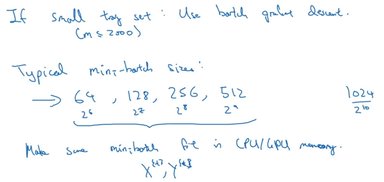 If small tray set : Use batch gradient descent.
(m ≤ 2000)
Typical mini-batch sizes :
→ 64 , 128 , 256 , 512 1024
2^6 2^7 2^8 2^9 2^10
Make sure minibatch fit in CPU/GPU memory.
X^{t}, Y^{t}